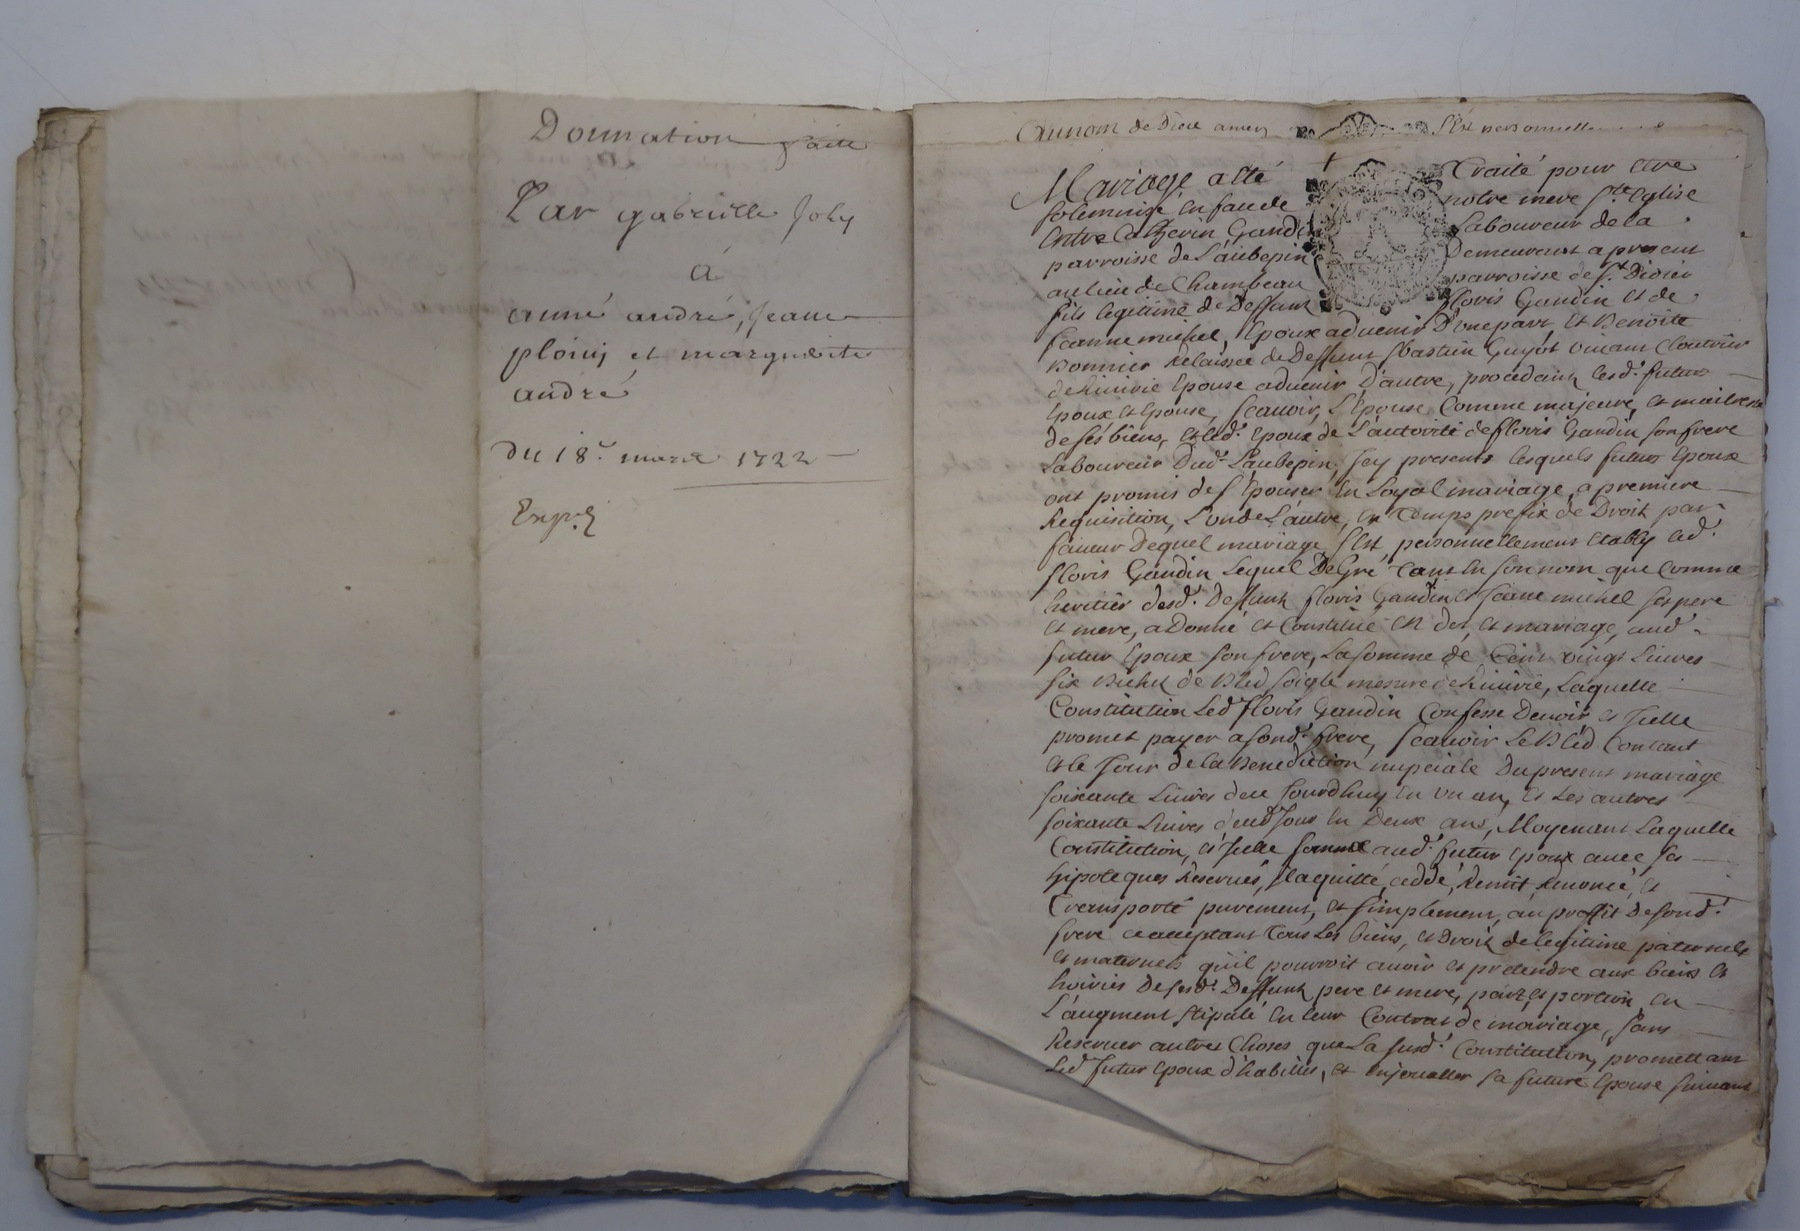 Donnation faite
Par gabrielle Joly
à
anne andré, Jeanne
plouy et marguerite
andré
du 18e. mars 1722
Expié
Au nom de Dieu amen S'est personnelle
Mariage a été Traité pour être
solemnisé en face de notre mere Ste. Eglise
entre Catherin Gandin Laboureur de la
parroisse de L'aubepin Demeurant a present
au lieu de Chambeau parroisse de St. Didier
fils legitime de Deffunt floris Gandin et de
Jeanne michel, Epoux aduenir D'une part, et Benoite
Bonnier Relaissée de Deffunt Sbastien Guyot viuant Cloutrier
de Riuirie Epouse aduenir D'autre, procedants lesd. futurs
Epoux et Epouse, scauoir, L'Epouse Comme majeure, et maitresse
de sés biens, et led. Epoux de L'autorité de floris Gandin son frere
Laboureur Dud. Laubepin, Jcy presents lesquels futurs Epoux
ont promis de s'Epouser En Loyal mariage, a premiere
Requisition, L'un de L'autre, en Temps prefix de Droit par
faueur Dequel mariage s'Est, personnellement Etably led.
floris Gandin Lequel De Gré Tant en son nom que Comme
heritier desd. Deffunts floris Gandin et Jeanne michel ses pere
et mere, a Donné et Constitué En dot, et mariage, aud.
futur Epoux son frere, La somme de Cent vingt Liures
six Bichets de Bled soigle mesure de Riuirie, Laquelle
Constitution Led floris Gandin Confesse Deuoir et Jcelle
promet payer a sond. frere, scauoir Le Bled Contant
et le Jour de la Benediction nupciale Du present mariage
soixante Liures d'eu Jourd'huy en vn an, et Les autres
soixante Liures d'eud Jour en Deux ans, Moyenant Laquelle
Constitution, et Jcelle somme aud. futur Epoux auec ses
hipoteques Reserués, Jl a quitté, ceddé, Remit Renoncé, et
Transporté purement, et simplement, au proffit De sond.
frere acceptant Tous Les biens, et Droit de legitime paternels
et maternels qu'il pourroit auoir et pretendre aux biens et
hoiries De sesd. Deffunts pere et mere, part, et portion en
L'augment stipulé en leur Contrat de mariage, sans
Reseruer autres Choses que La susd. Constitution, promettant
Led futur Epoux d'habillér, et enjoualler sa future Epouse suiuant